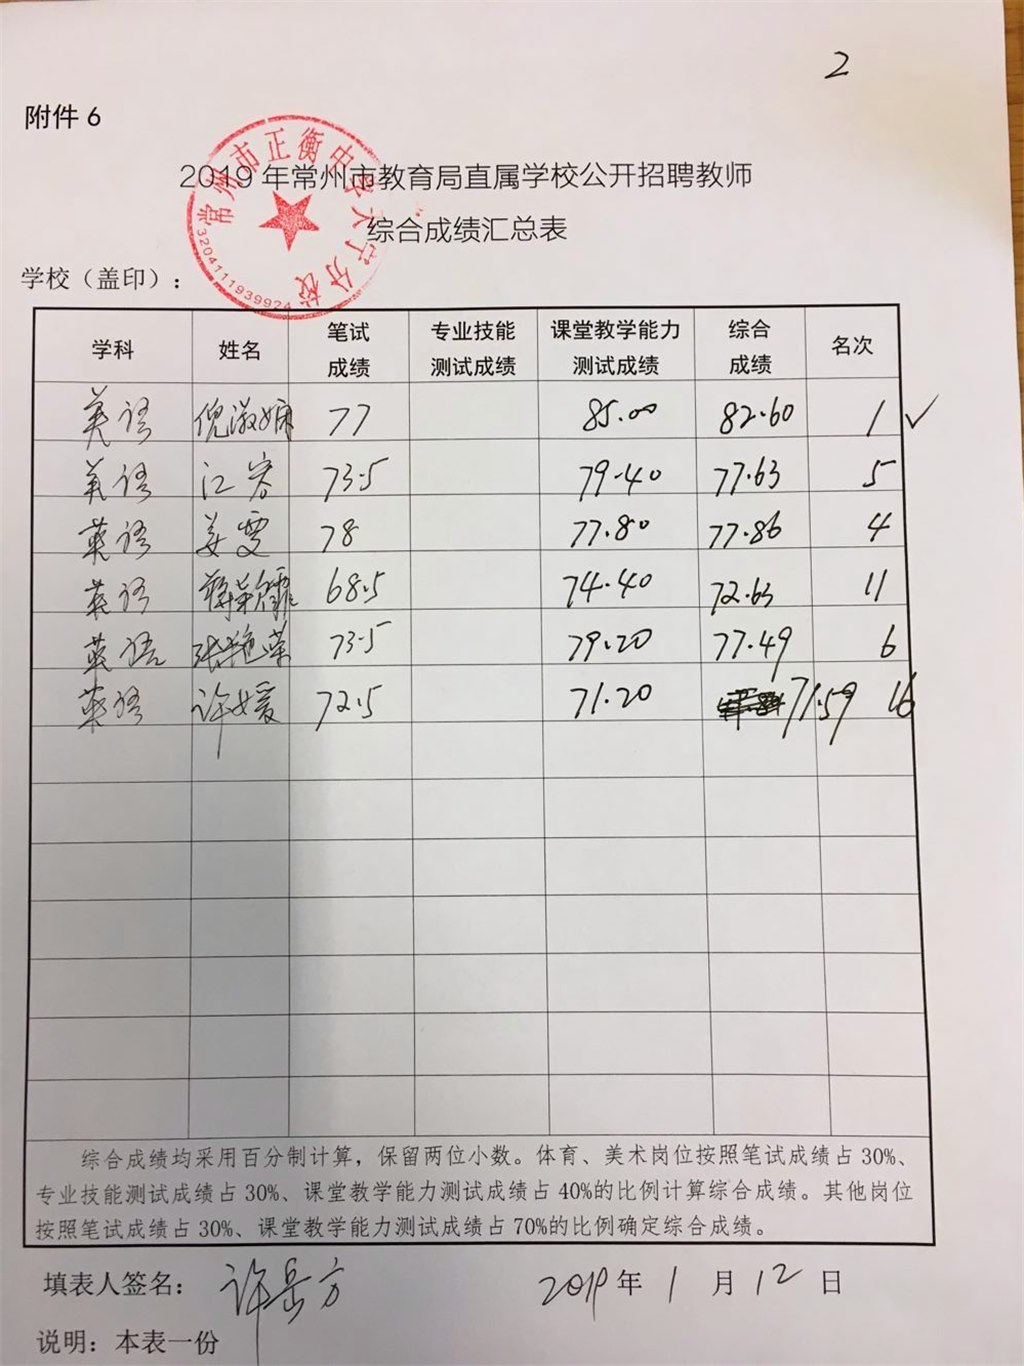 2
附件 6
常州市正衡中学天宁分校
3204111939924
2019 年常州市教育局直属学校公开招聘教师
综合成绩汇总表
学校（盖印）：
学科 姓名 笔试成绩 专业技能测试成绩 课堂教学能力测试成绩 综合成绩 名次
英语 倪 77 85.00 82.60 1 ✓
英语 江容 73.5 79.40 77.63 5
英语 姜雯 78 77.80 77.86 4
英语 68.5 74.40 72.63 11
英语 张艳荣 73.5 79.20 77.49 6
英语 许媛 72.5 71.20 71.59 16
综合成绩均采用百分制计算，保留两位小数。体育、美术岗位按照笔试成绩占 30%、
专业技能测试成绩占 30%、课堂教学能力测试成绩占 40%的比例计算综合成绩。其他岗位
按照笔试成绩占 30%、课堂教学能力测试成绩占 70%的比例确定综合成绩。
填表人签名： 许岳方 2019 年 1 月 12 日
说明：本表一份